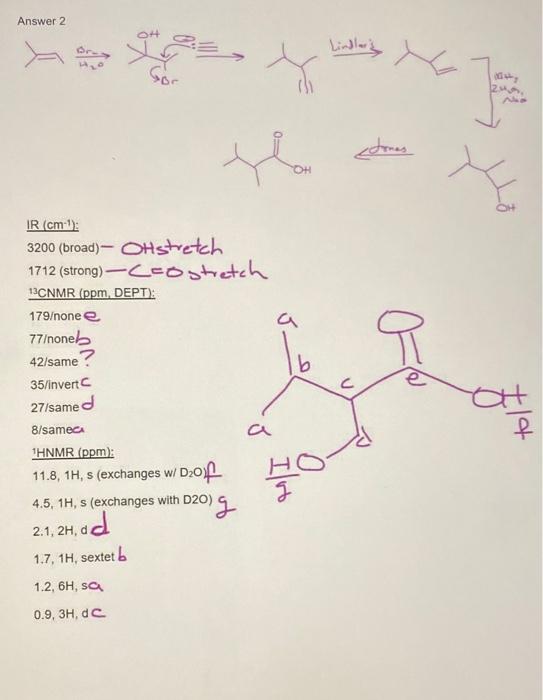 Answer 2
OH
Br₂
H₂O
Br
Lindlar's
OH
O
OH
Jones
IR (cm⁻¹):
3200 (broad) – OH stretch
1712 (strong) – C=O stretch
¹³CNMR (ppm, DEPT):
179/none e
77/none b
42/same ?
35/invert c
27/same d
8/same a
¹HNMR (ppm):
11.8, 1H, s (exchanges w/ D₂O) f
4.5, 1H, s (exchanges with D2O) g
2.1, 2H, d d
1.7, 1H, sextet b
1.2, 6H, s a
0.9, 3H, d c
a
O
b
c
e
OH
f
a
d
HO
g